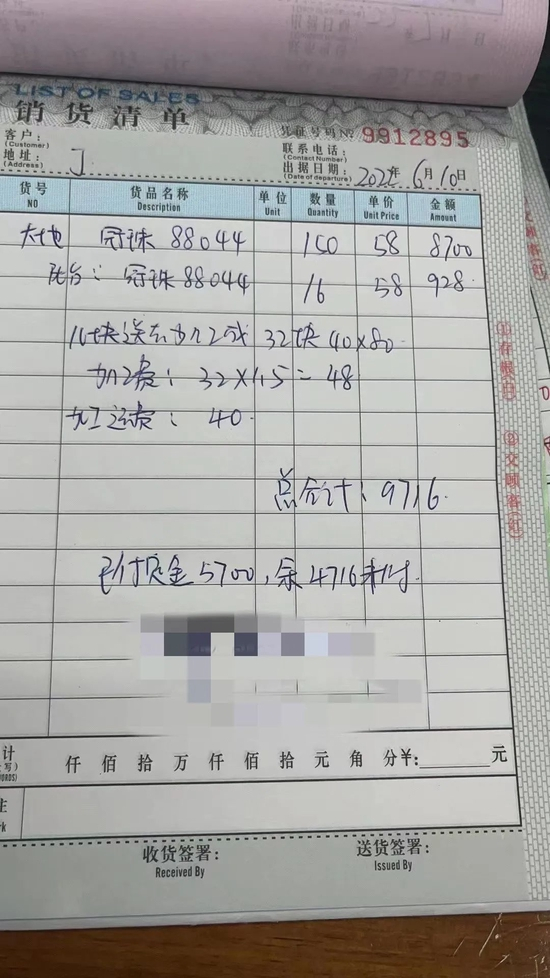 LIST OF SALES
销货清单
凭证号码 № 9912895
客户：
(Customer)
联系电话：
(Contact Number)
地址：J
(Address)
出据日期：2022年6月10日
(Date of departure)
货号 货品名称 单位 数量 单价 金额
NO Description Unit Quantity Unit Price Amount
大地 冠珠 88044 150 58 8700
阳台：冠珠 88044 16 58 928
16块送去加工成 32块 40×80
加工费：32×1.5=48
加工运费：40
总合计：9716
已付定金5700，余4716未付
计 仟佰拾万仟佰拾元角分¥: 元
收货签署：
Received By
送货签署：
Issued By
①存根(白)
②交顾客(红)